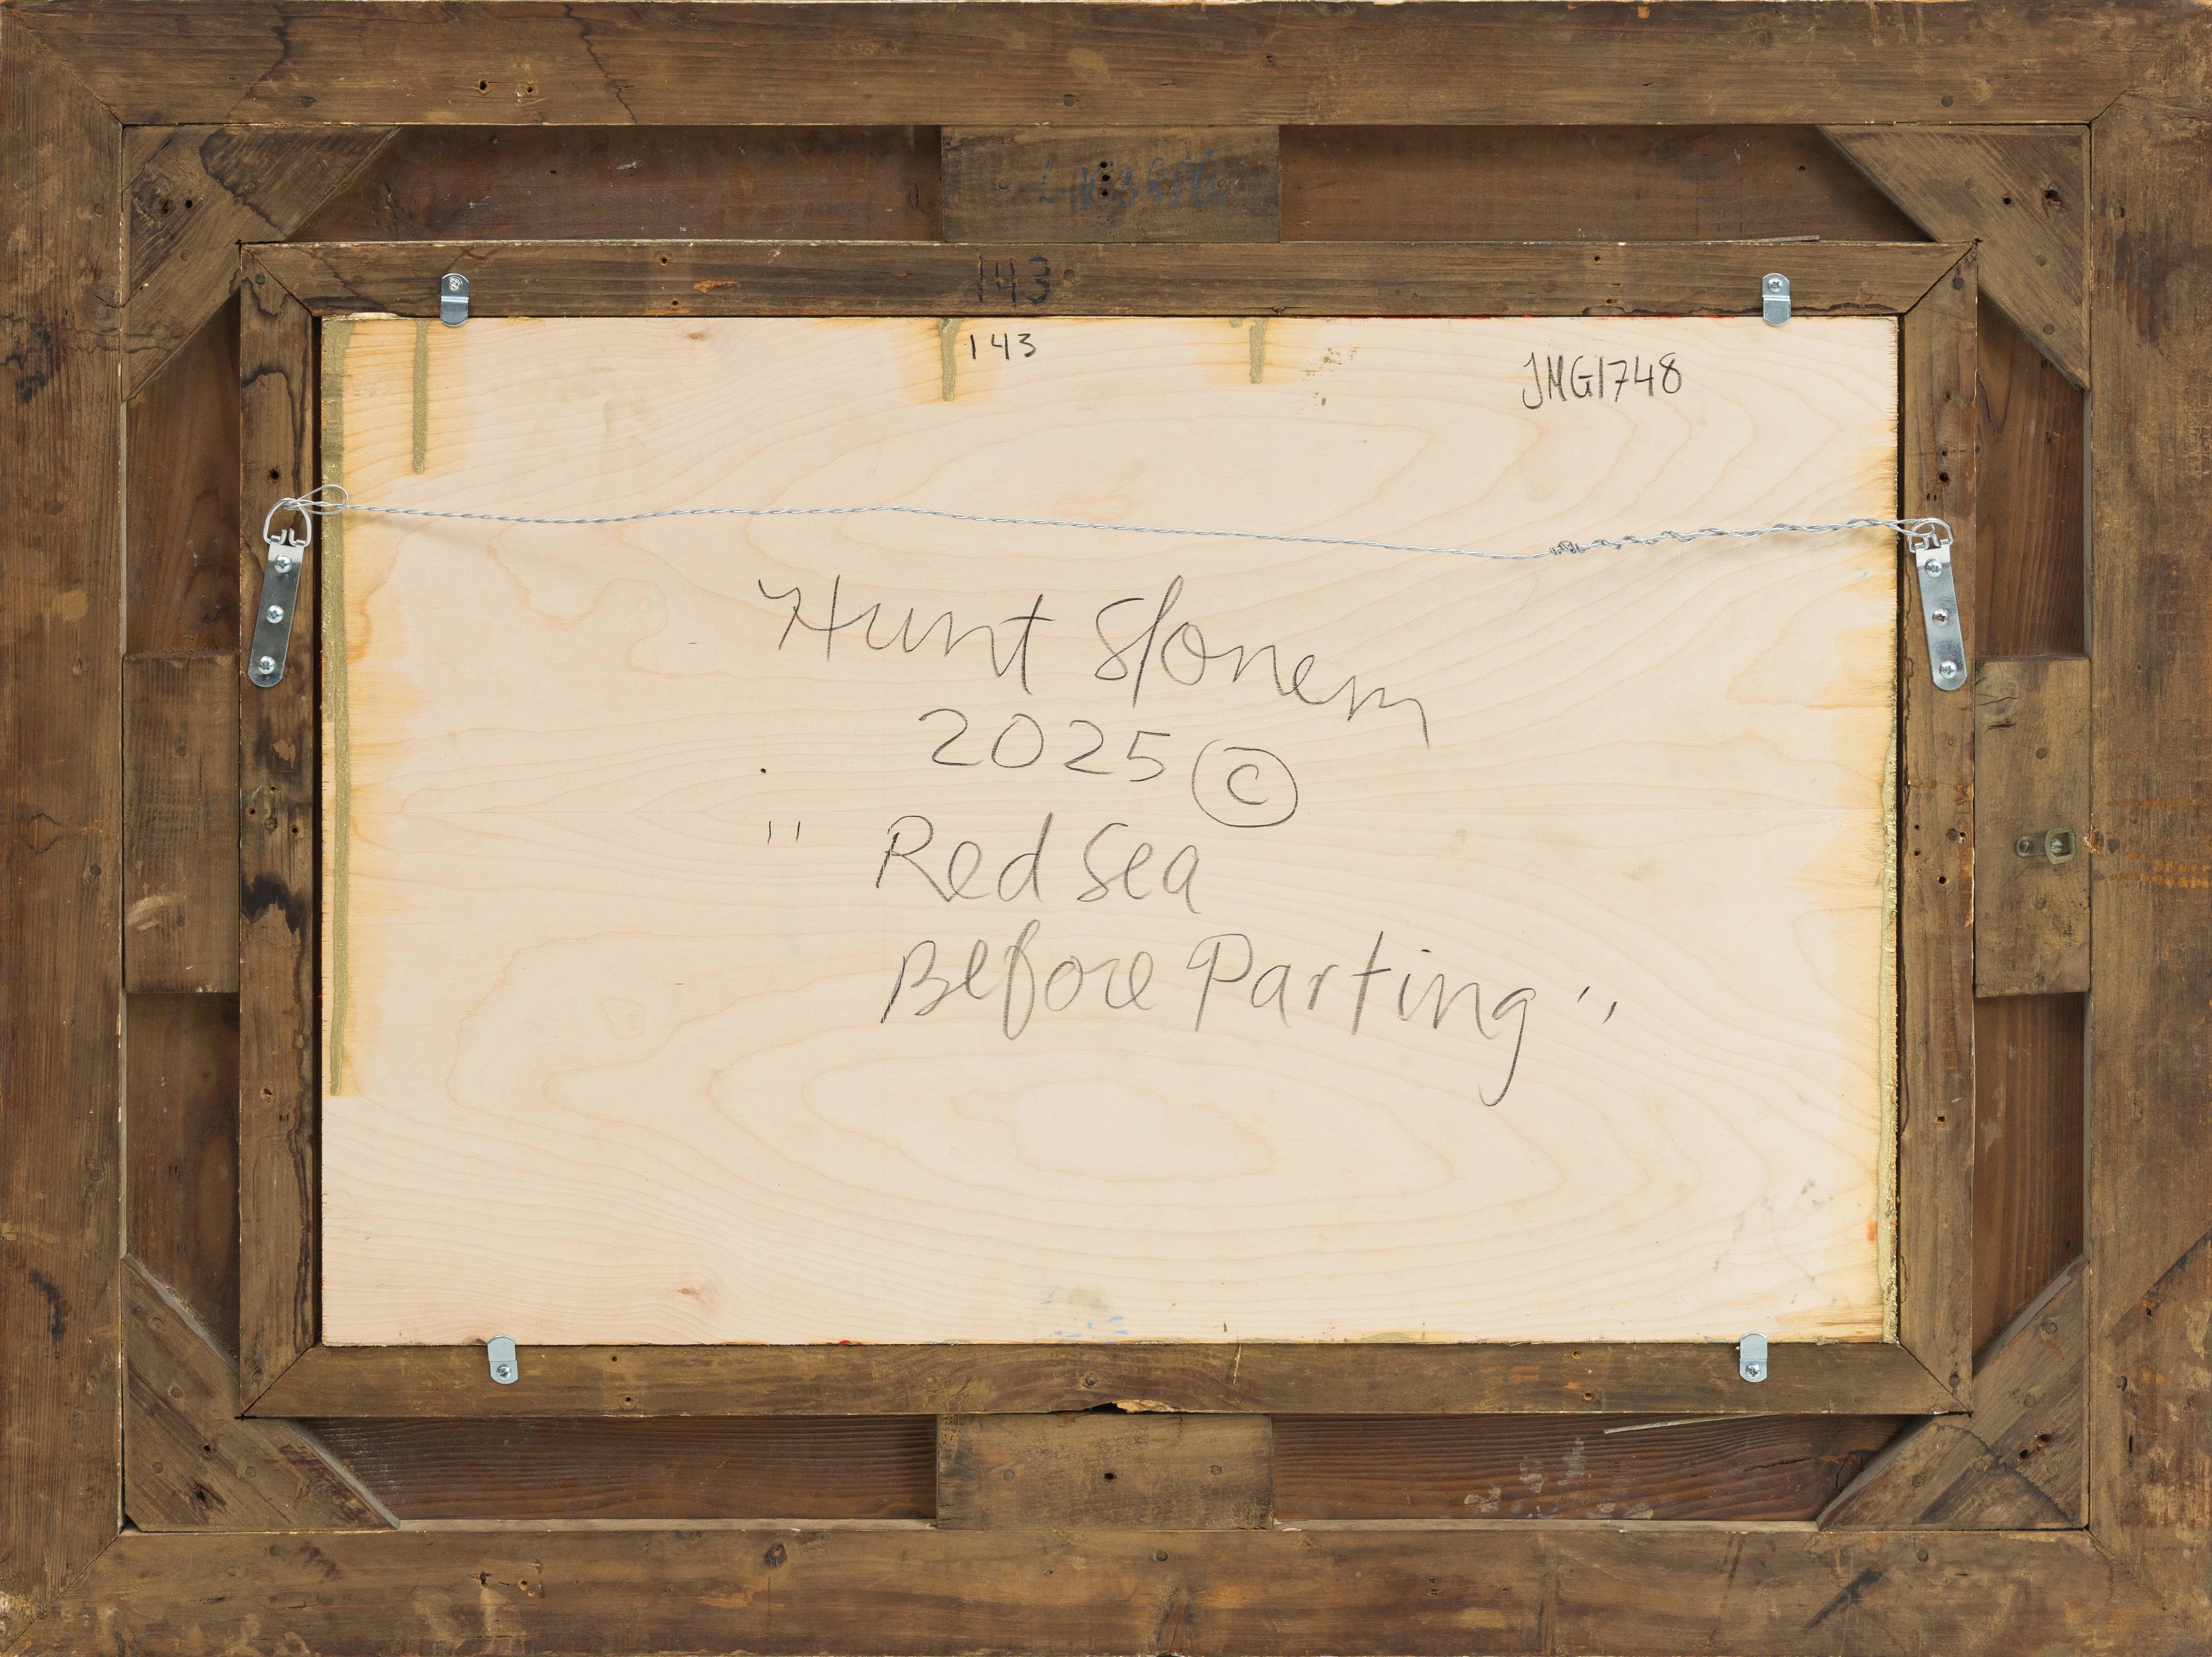 143
143
JMG1748
Hunt Slonem
2025 ©
" Red Sea
Before Parting "